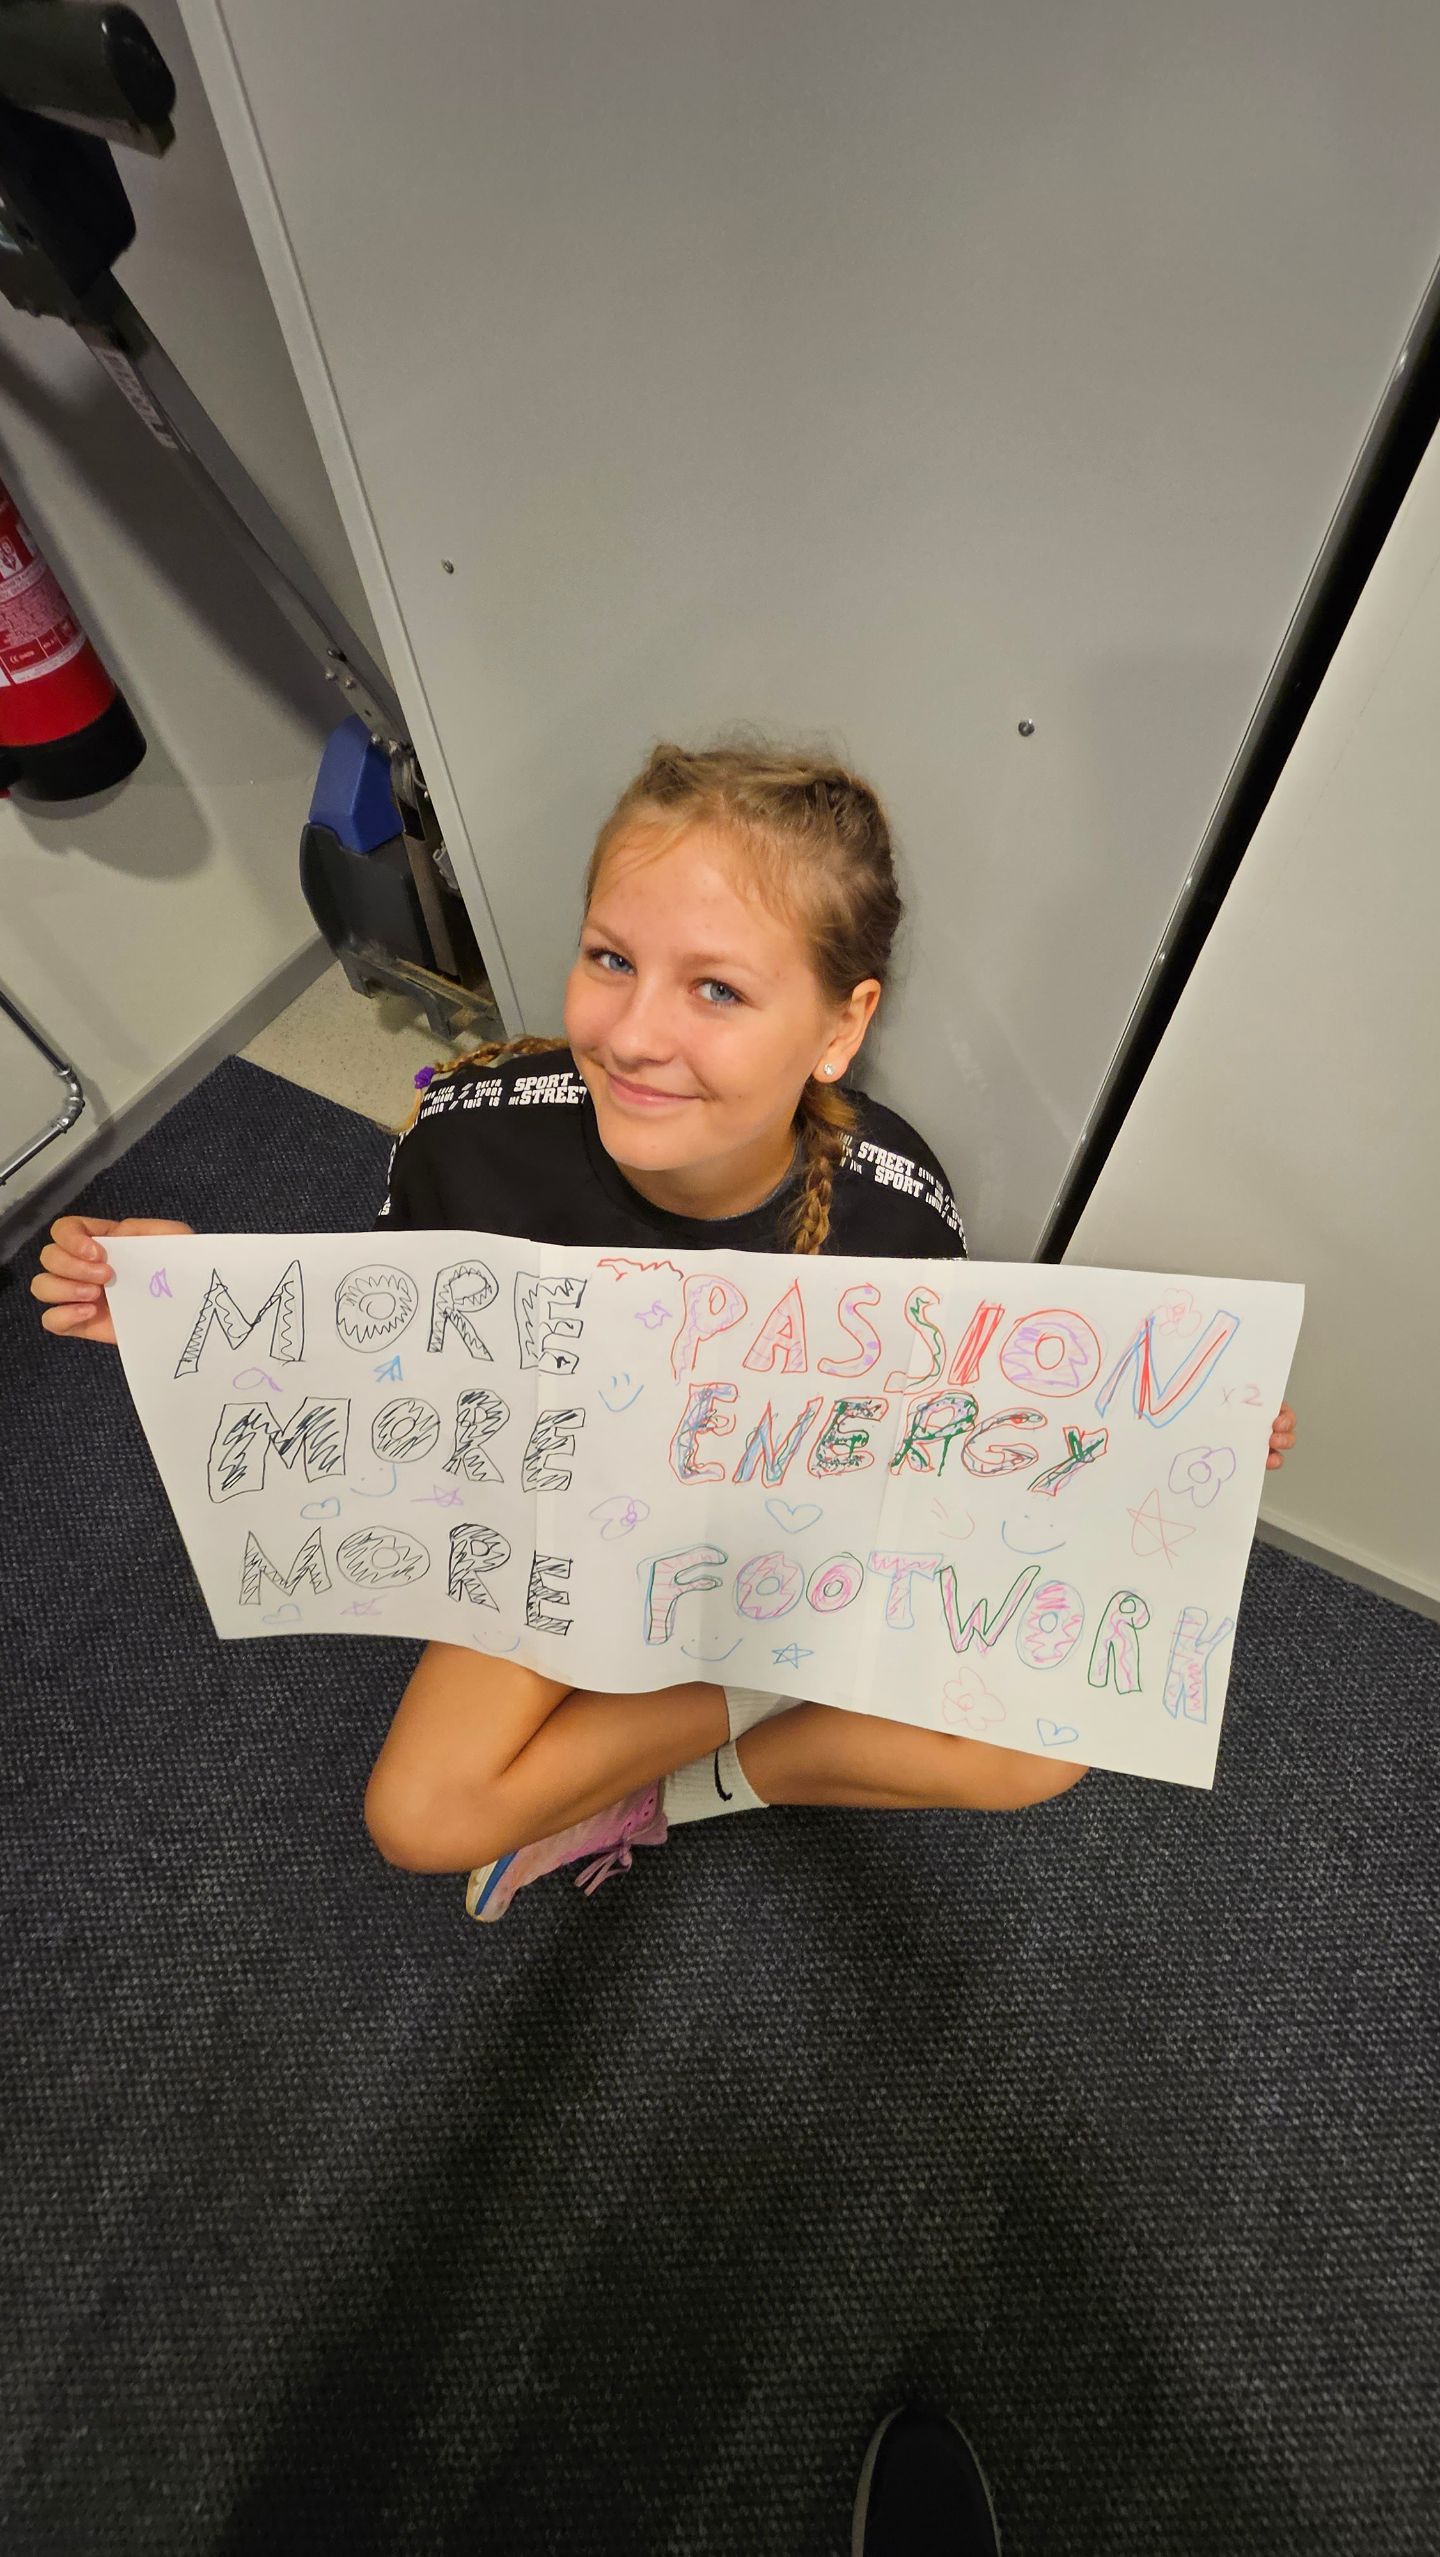 MORE PASSION x2
MORE ENERGY
MORE FOOTWORK
SPORT
STREET
STREET
SPORT